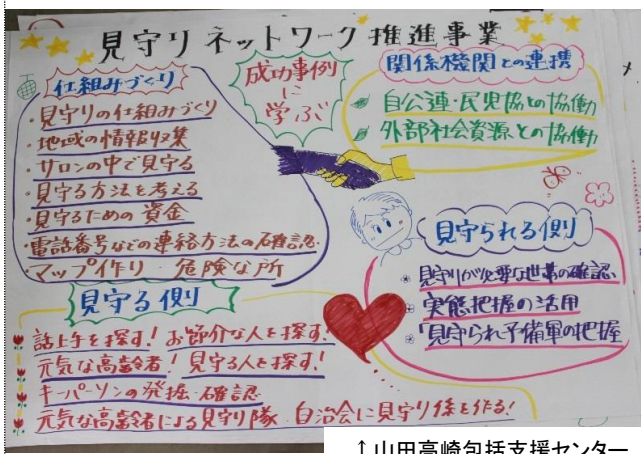 見守りネットワーク推進事業
仕組みづくり
・見守りの仕組みづくり
・地域の情報収集
・サロンの中で見守る
・見守る方法を考える
・見守るための資金
・電話番号などの連絡方法の確認
・マップ作り 危険な所
成功事例
に
学ぶ
関係機関との連携
自公連・民児協との協働
外部社会資源との協働
見守られる側
見守りが必要な世帯の確認
実態把握の活用
「見守られ予備軍の把握
見守る側
話上手を探す!お節介な人を探す!
元気な高齢者!見守る人を探す!
キーパーソンの発掘・確認
元気な高齢者による見守り隊 自治会に見守り係を作る!
↑山田高崎包括支援センター